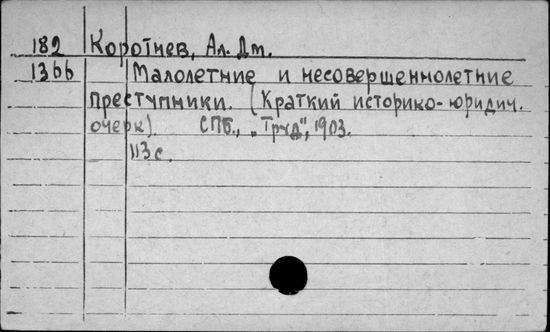 182 Коротнев, Ал. Дм.
1366 Малолетние и несовершеннолетние
преступники. (Краткий историко-юридич.
очерк). СПб., „Труд", 1903.
113 с.